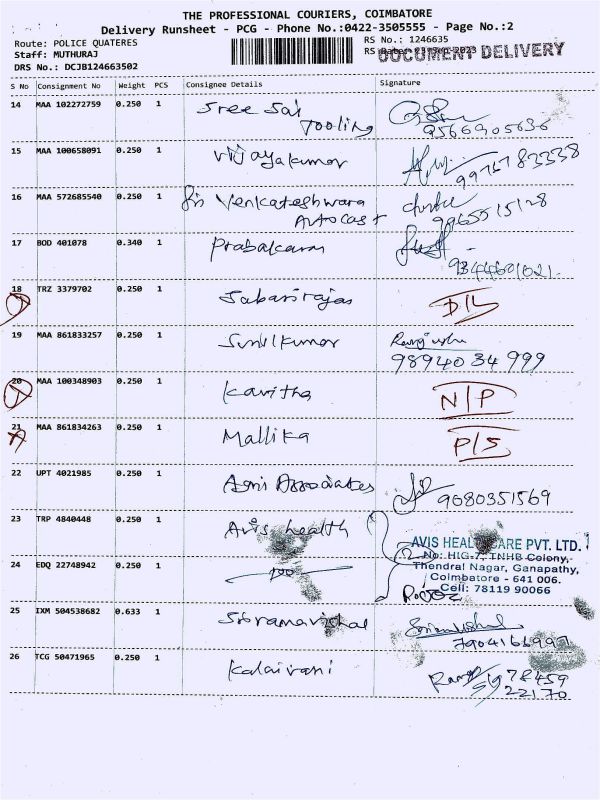 THE PROFESSIONAL COURIERS, COIMBATORE
Delivery Runsheet - PCG - Phone No.:0422-3505555 - Page No.:2
Route: POLICE QUATERES
RS No.: 1246635
Staff: MUTHURAJ
RS Date: 23-Sep-2023
DOCUMENT DELIVERY
DRS No.: DCJB124663502
S No Consignment No Weight PCS Consignee Details Signature
14 MAA 102272759 0.250 1 Sree Sai
Tooling
9566905636
15 MAA 100658091 0.250 1 Vijayakumar
9976783338
16 MAA 572685540 0.250 1 Sri Venkateshwara
Autocast
9965515128
17 BOD 401078 0.340 1 Prabakaran
9844601021
18 TRZ 3379702 0.250 1 Sabarirajas D/L
19 MAA 861833257 0.250 1 Sunilkumar
9894034999
20 MAA 100348903 0.250 1 Kavitha N/P
21 MAA 861834263 0.250 1 Mallika P/S
22 UPT 4021985 0.250 1 Agni Associates 9080351569
23 TRP 4840448 0.250 1 Avis health
AVIS HEALTHCARE PVT. LTD.
No: HIG-7, TNHB Colony,
24 EDQ 22748942 0.250 1
Thendral Nagar, Ganapathy,
Coimbatore - 641 006.
Cell: 78119 90066
25 IXM 504538682 0.633 1 Sriramavishal
7904166997
26 TCG 50471965 0.250 1 Kalaivani